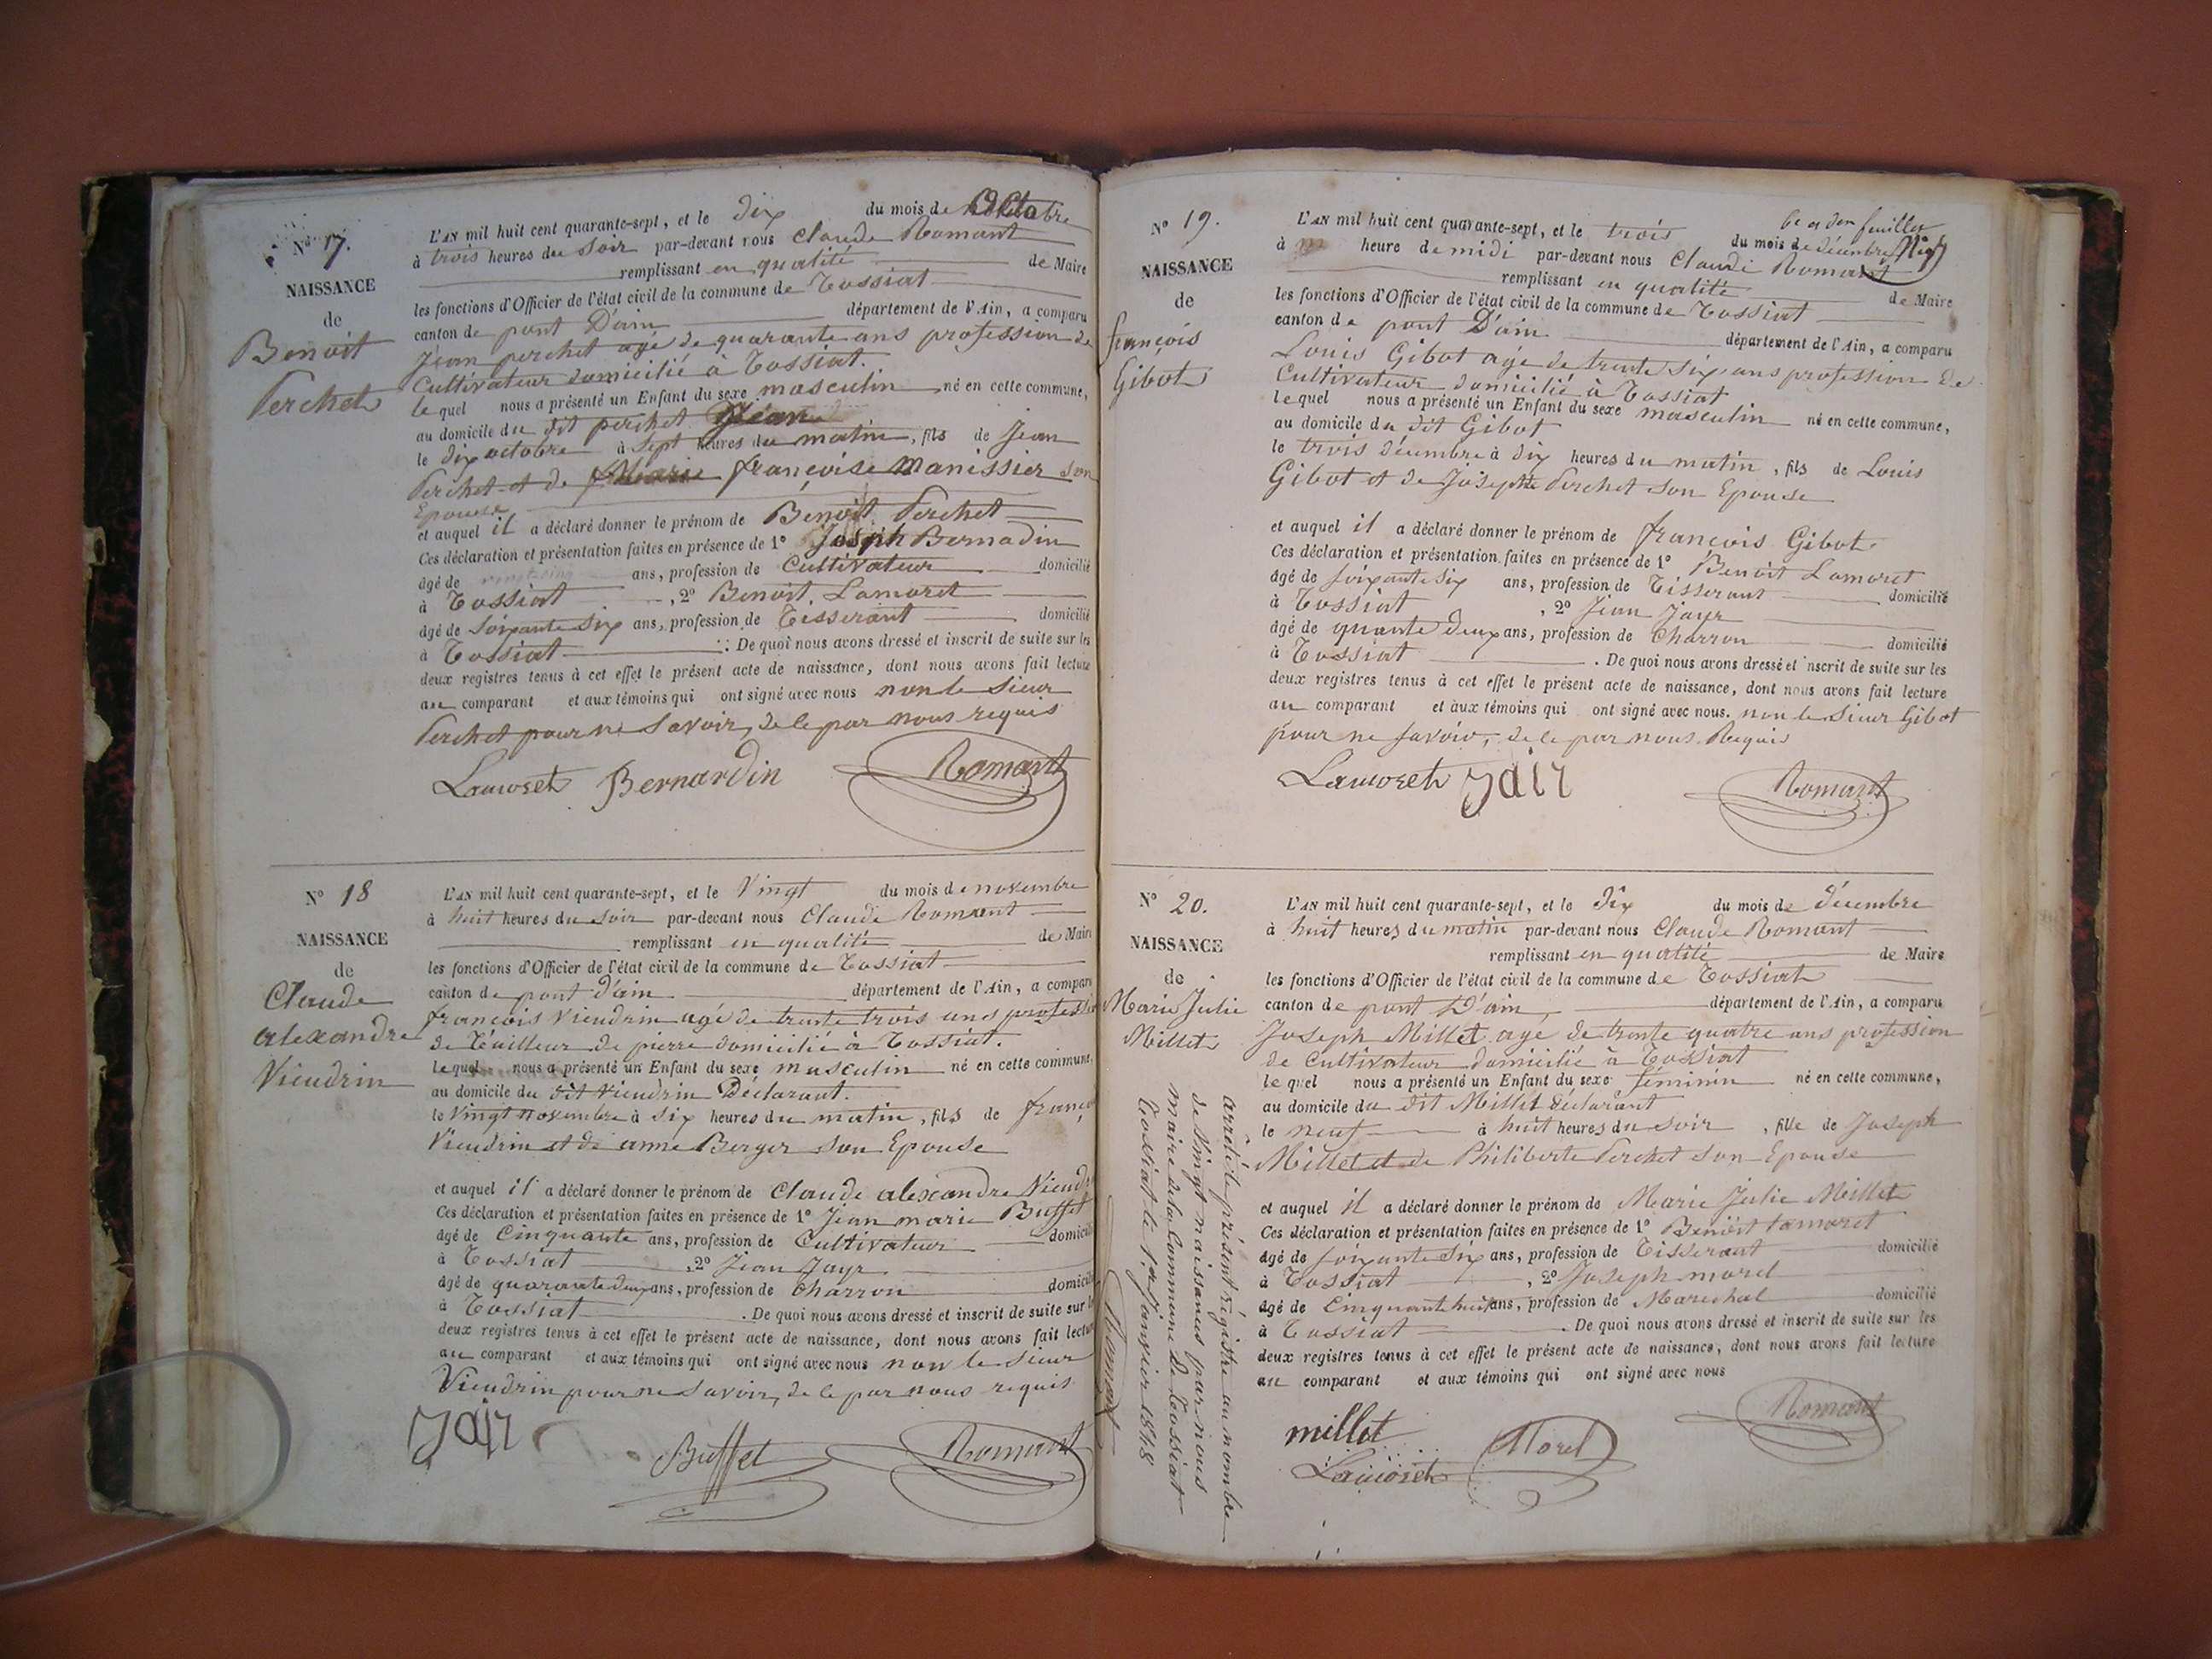 N° 17.
NAISSANCE
de
Benoit
Perchet
L'AN mil huit cent quarante-sept, et le dix du mois de Octobre
à trois heures du soir par-devant nous Claude Romant
remplissant en qualité de Maire
les fonctions d'Officier de l'état civil de la commune de Tossiat
canton de pont D'ain département de l'Ain, a comparu
Jean perchet agé de quarante ans profession de
Cultivateur domicilié à Tossiat.
lequel nous a présenté un Enfant du sexe masculin né en cette commune,
au domicile du dit perchet Jean
le dix octobre à sept heures du matin, fils de Jean
Perchet et de Marie françoise Manissier son
Epouse
et auquel il a déclaré donner le prénom de Benoit Perchet
Ces déclaration et présentation faites en présence de 1° Joseph Bernadin
âgé de ans, profession de Cultivateur domicilié
à Tossiat, 2° Benoit Lamoret
âgé de soixante six ans, profession de Tisserant domicilié
à Tossiat : De quoi nous avons dressé et inscrit de suite sur les
deux registres tenus à cet effet le présent acte de naissance, dont nous avons fait lecture
au comparant et aux témoins qui ont signé avec nous non le sieur
Perchet pour ne savoir, de le par nous requis
Lamoret Bernardin Romant
N° 18
NAISSANCE
de
Claude
alexandre
Vieudrin
L'AN mil huit cent quarante-sept, et le Vingt du mois de novembre
à huit heures du soir par-devant nous Claude Romant
remplissant en qualité de Maire
les fonctions d'Officier de l'état civil de la commune de Tossiat
canton de pont d'ain département de l'Ain, a comparu
françois Vieudrin agé de trente trois ans profession
de Tailleur de pierre domicilié à Tossiat.
lequel nous a présenté un Enfant du sexe masculin né en cette commune,
au domicile du dit Vieudrin Déclarant.
le Vingt novembre à six heures du matin, fils de françois
Vieudrin et de anne Berger son Epouse
et auquel il a déclaré donner le prénom de Claude alexandre Vieudrin
Ces déclaration et présentation faites en présence de 1° Jean marie Buffet
âgé de Cinquante ans, profession de Cultivateur domicilié
à Tossiat, 2° Jean Jayr
âgé de quarante deux ans, profession de Charron domicilié
à Tossiat. De quoi nous avons dressé et inscrit de suite sur les
deux registres tenus à cet effet le présent acte de naissance, dont nous avons fait lecture
au comparant et aux témoins qui ont signé avec nous non le sieur
Vieudrin pour ne savoir, de le par nous requis
Jair Buffet Romant
N° 19.
NAISSANCE
de
françois
Gibot
feuillet
L'AN mil huit cent quarante-sept, et le trois du mois de décembre
à heure de midi par-devant nous Claude Romant
remplissant en qualité de Maire
les fonctions d'Officier de l'état civil de la commune de Tossiat
canton de pont D'ain département de l'Ain, a comparu
Louis Gibot agé de trente six ans profession de
Cultivateur domicilié à Tossiat
lequel nous a présenté un Enfant du sexe masculin né en cette commune,
au domicile du dit Gibot
le trois décembre à dix heures du matin, fils de Louis
Gibot et de Josephte Perchet son Epouse
et auquel il a déclaré donner le prénom de françois Gibot.
Ces déclaration et présentation faites en présence de 1° Benoit Lamoret
âgé de soixante six ans, profession de Tisserant domicilié
à Tossiat, 2° Jean Jayr
âgé de quarante deux ans, profession de Charron domicilié
à Tossiat. De quoi nous avons dressé et inscrit de suite sur les
deux registres tenus à cet effet le présent acte de naissance, dont nous avons fait lecture
au comparant et aux témoins qui ont signé avec nous. non le Sieur Gibot
pour ne savoir, de le par nous Requis
Lamoret Jair Romant
N° 20.
NAISSANCE
de
Marie Julie
Millet
L'AN mil huit cent quarante-sept, et le Dix du mois de décembre
à huit heures du matin par-devant nous Claude Romant
remplissant en qualité de Maire
les fonctions d'Officier de l'état civil de la commune de Tossiat
canton de pont D'ain, département de l'Ain, a comparu
Joseph Millet agé de trente quatre ans profession
de Cultivateur domicilié à Tossiat
lequel nous a présenté un Enfant du sexe féminin né en cette commune,
au domicile du dit Millet déclarant
le neuf à huit heures du soir, fille de Joseph
Millet et de Philiberte Perchet son Epouse
et auquel il a déclaré donner le prénom de Marie Julie Millet
Ces déclaration et présentation faites en présence de 1° Benoit Lamoret
âgé de soixante six ans, profession de Tisserant domicilié
à Tossiat, 2° Joseph morel
âgé de Cinquante huit ans, profession de Marechal domicilié
à Tossiat. De quoi nous avons dressé et inscrit de suite sur les
deux registres tenus à cet effet le présent acte de naissance, dont nous avons fait lecture
au comparant et aux témoins qui ont signé avec nous
millet Morel Romant
Lamoret
arrêté le présent régistre au nombre
de Vingt naissances par nous
maire de la Commune de Tossiat
Tossiat le 1er Janvier 1848
Romant